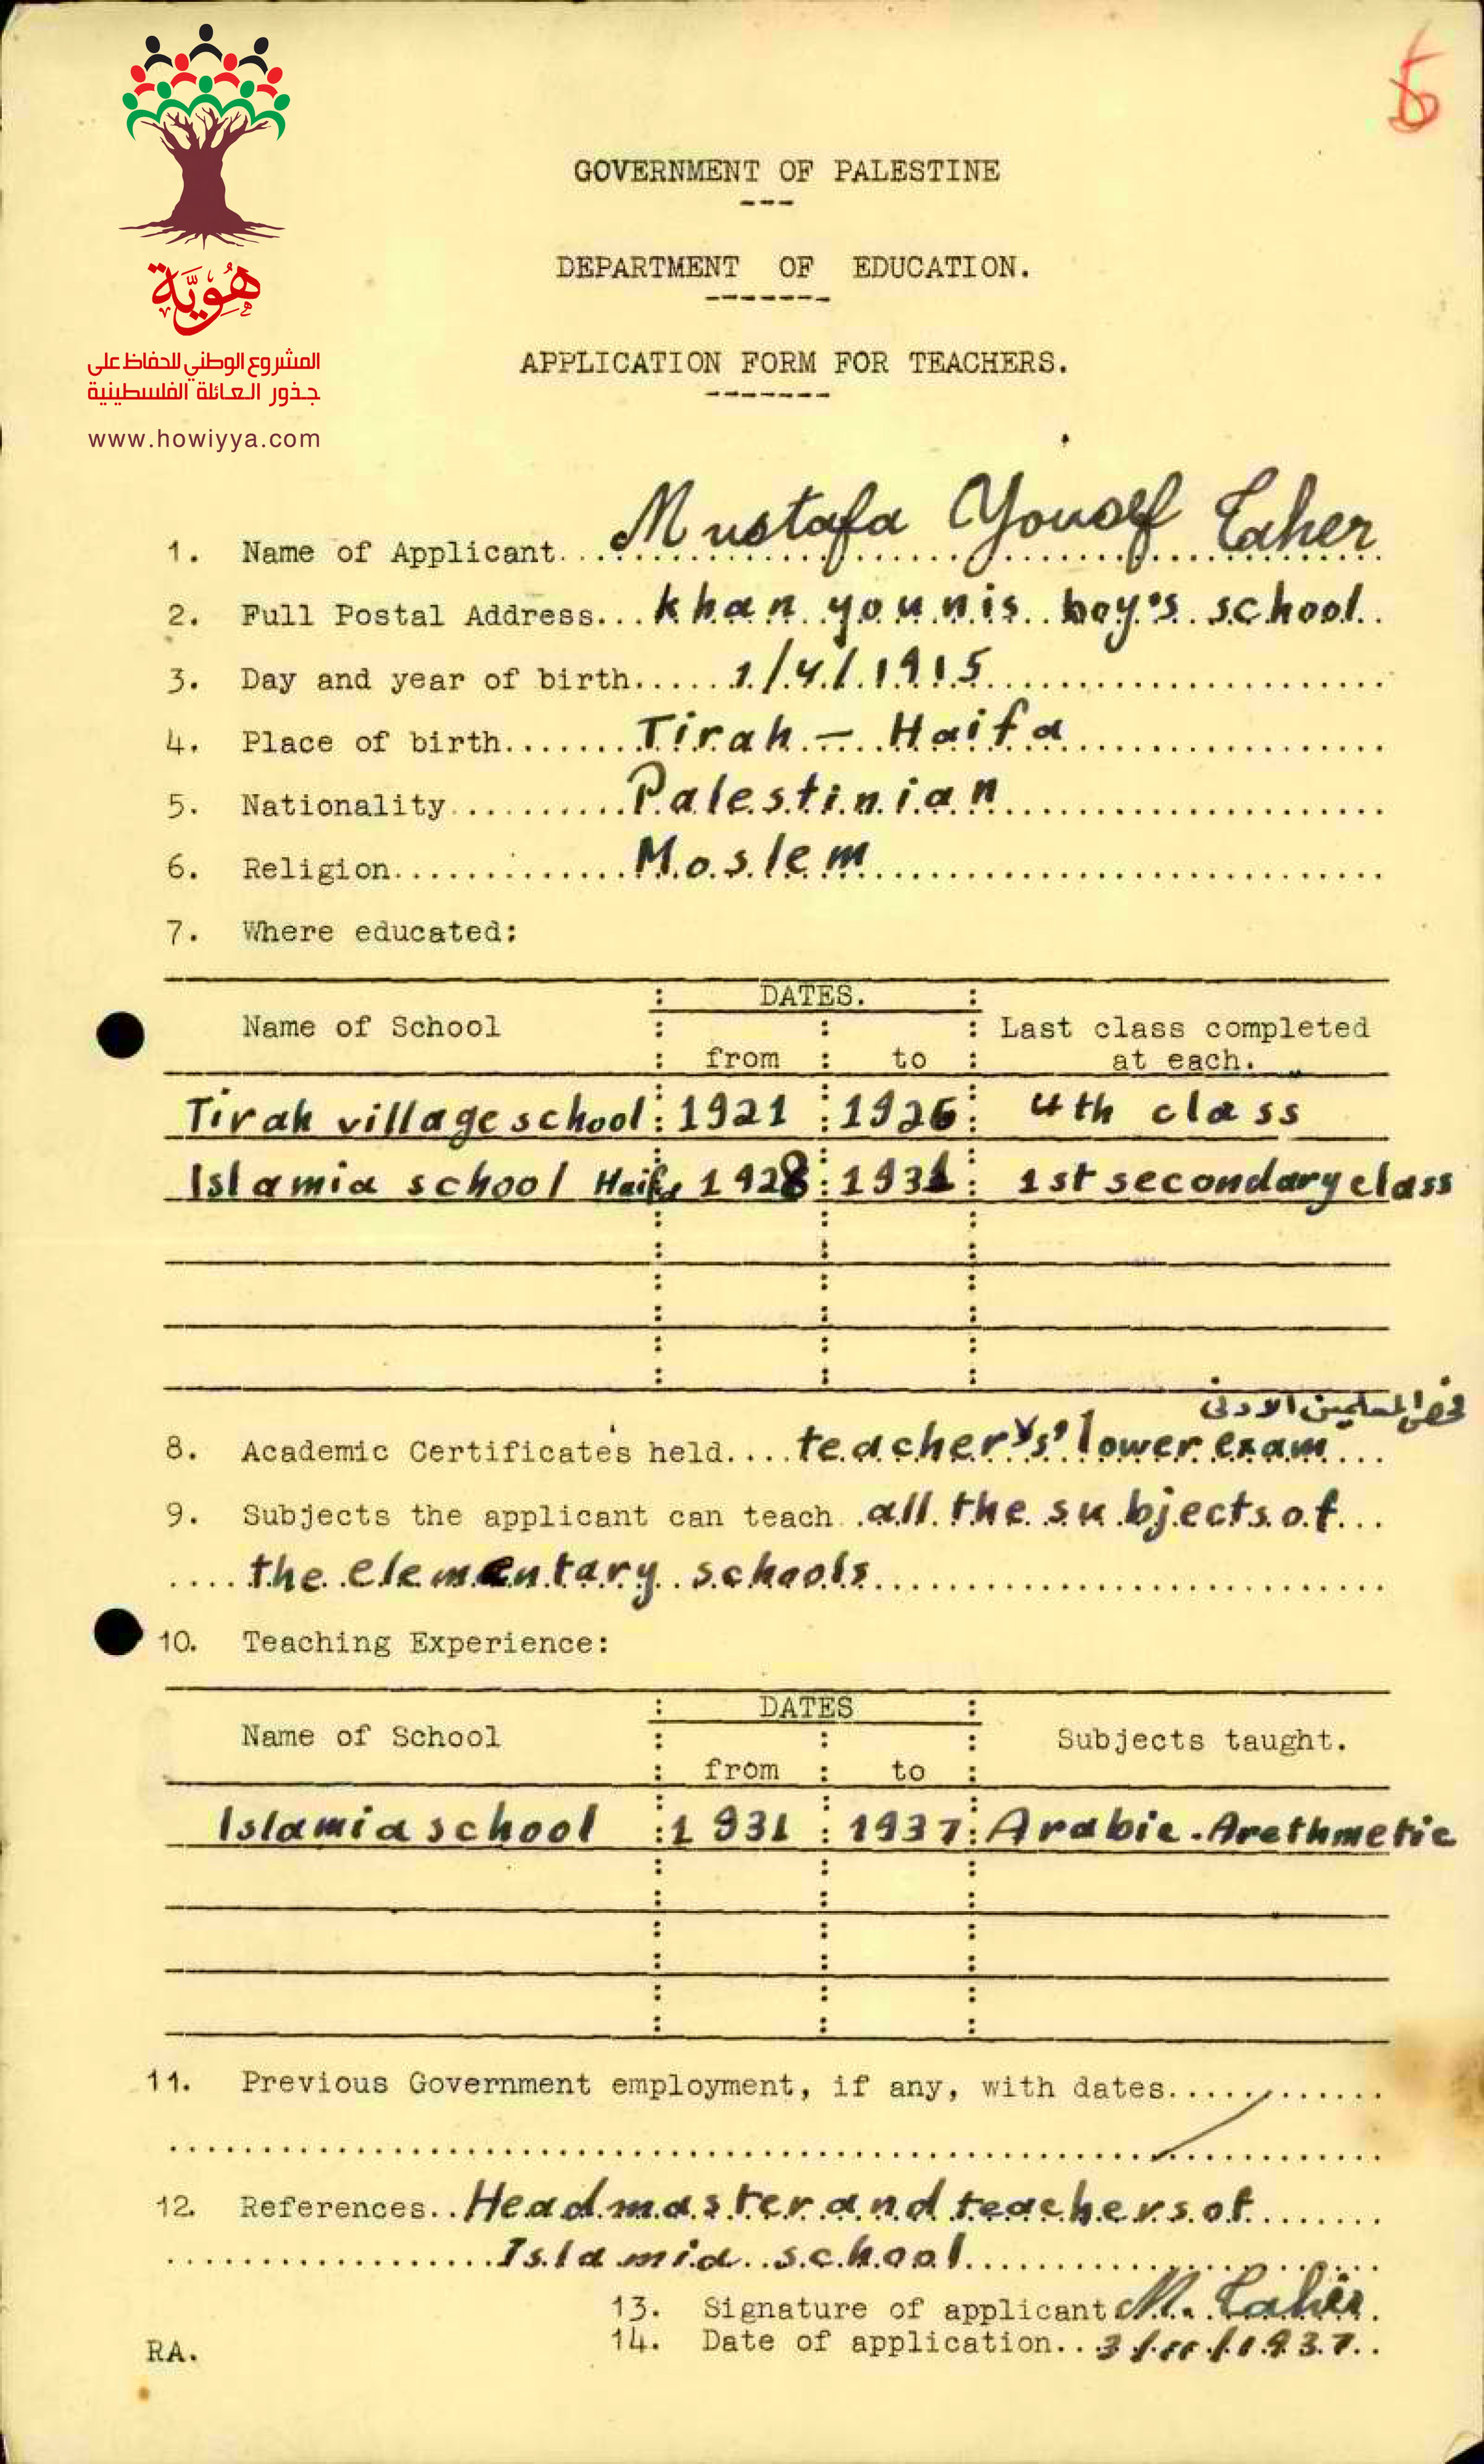 5
هوية
المشروع الوطني للحفاظ على
جذور العائلة الفلسطينية
www.howiyya.com
GOVERNMENT OF PALESTINE
DEPARTMENT OF EDUCATION.
APPLICATION FORM FOR TEACHERS.
1. Name of Applicant... Mustafa Yousef Taher
2. Full Postal Address... Khan younis boy's school
3. Day and year of birth...... 1/4/1915
4. Place of birth....... Tirah - Haifa
5. Nationality.......... Palestinian
6. Religion............. Moslem
7. Where educated:
DATES.
Name of School : : : Last class completed
: from : to : at each.
Tirah village school : 1921 : 1926 : 4th class
Islamia school Haifa 1928 : 1931 : 1st secondary class
فحص المعلمين الادنى
8. Academic Certificates held.... teachers' lower exam...
9. Subjects the applicant can teach.. all the subjects of...
.... the elementary schools
10. Teaching Experience:
DATES
Name of School : : : Subjects taught.
: from : to :
Islamia school : 1931 : 1937 : Arabic - Arethmetic
11. Previous Government employment, if any, with dates............
12. References.. Headmaster and teachers of........
Islamia school
13. Signature of applicant M. Taher.
14. Date of application.. 3/11/1937..
RA.